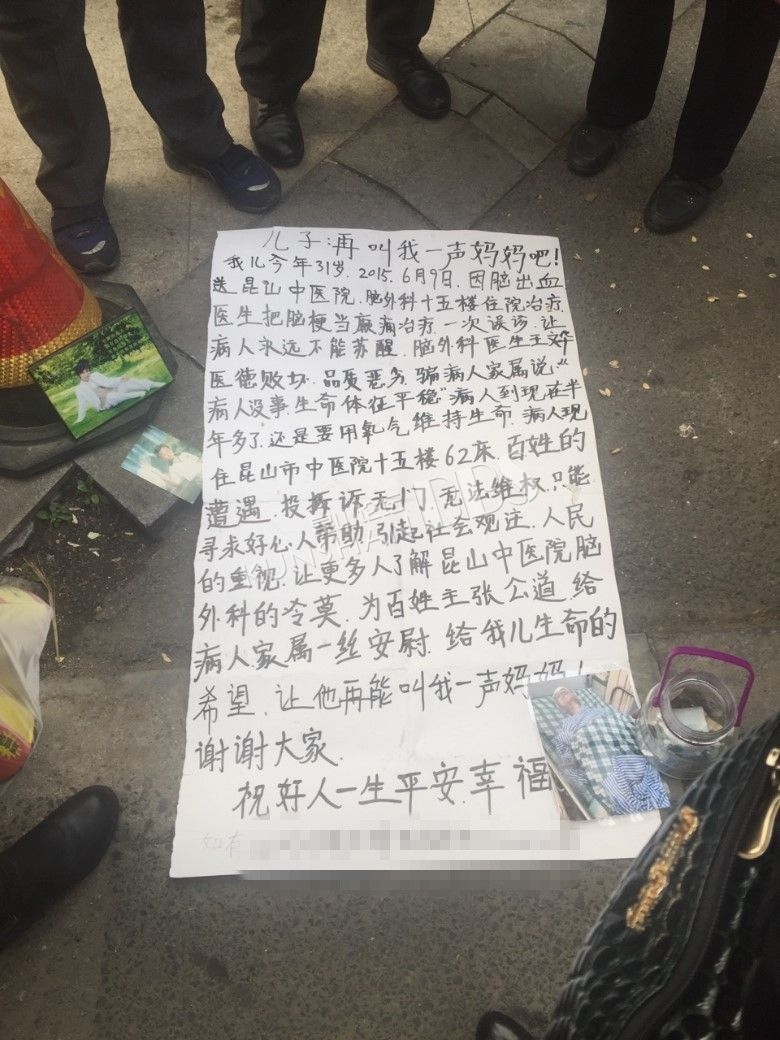 儿子:再叫我一声妈妈吧!
我儿今年31岁.2015.6月9日.因脑出血
送昆山中医院.脑外科十五楼住院治疗.
医生把脑梗当癫痫治疗.一次误诊.让
病人永远不能苏醒.脑外科医生王文华
医德败坏.品质恶劣.骗病人家属说“
病人没事生命体征平稳”病人到现在半
年多了.还是要用氧气维持生命.病人现
住昆山市中医院十五楼62床.百姓的
遭遇.投拆诉无门.无法维权.只能
寻求好心人帮助.引起社会观注.人民
的重视.让更多人了解昆山中医院脑
外科的冷莫.为百姓主张公道.给
病人家属一丝安尉.给我儿生命的
希望.让他再能叫我一声妈妈!
谢谢大家.
祝好人一生平安.幸福
如有